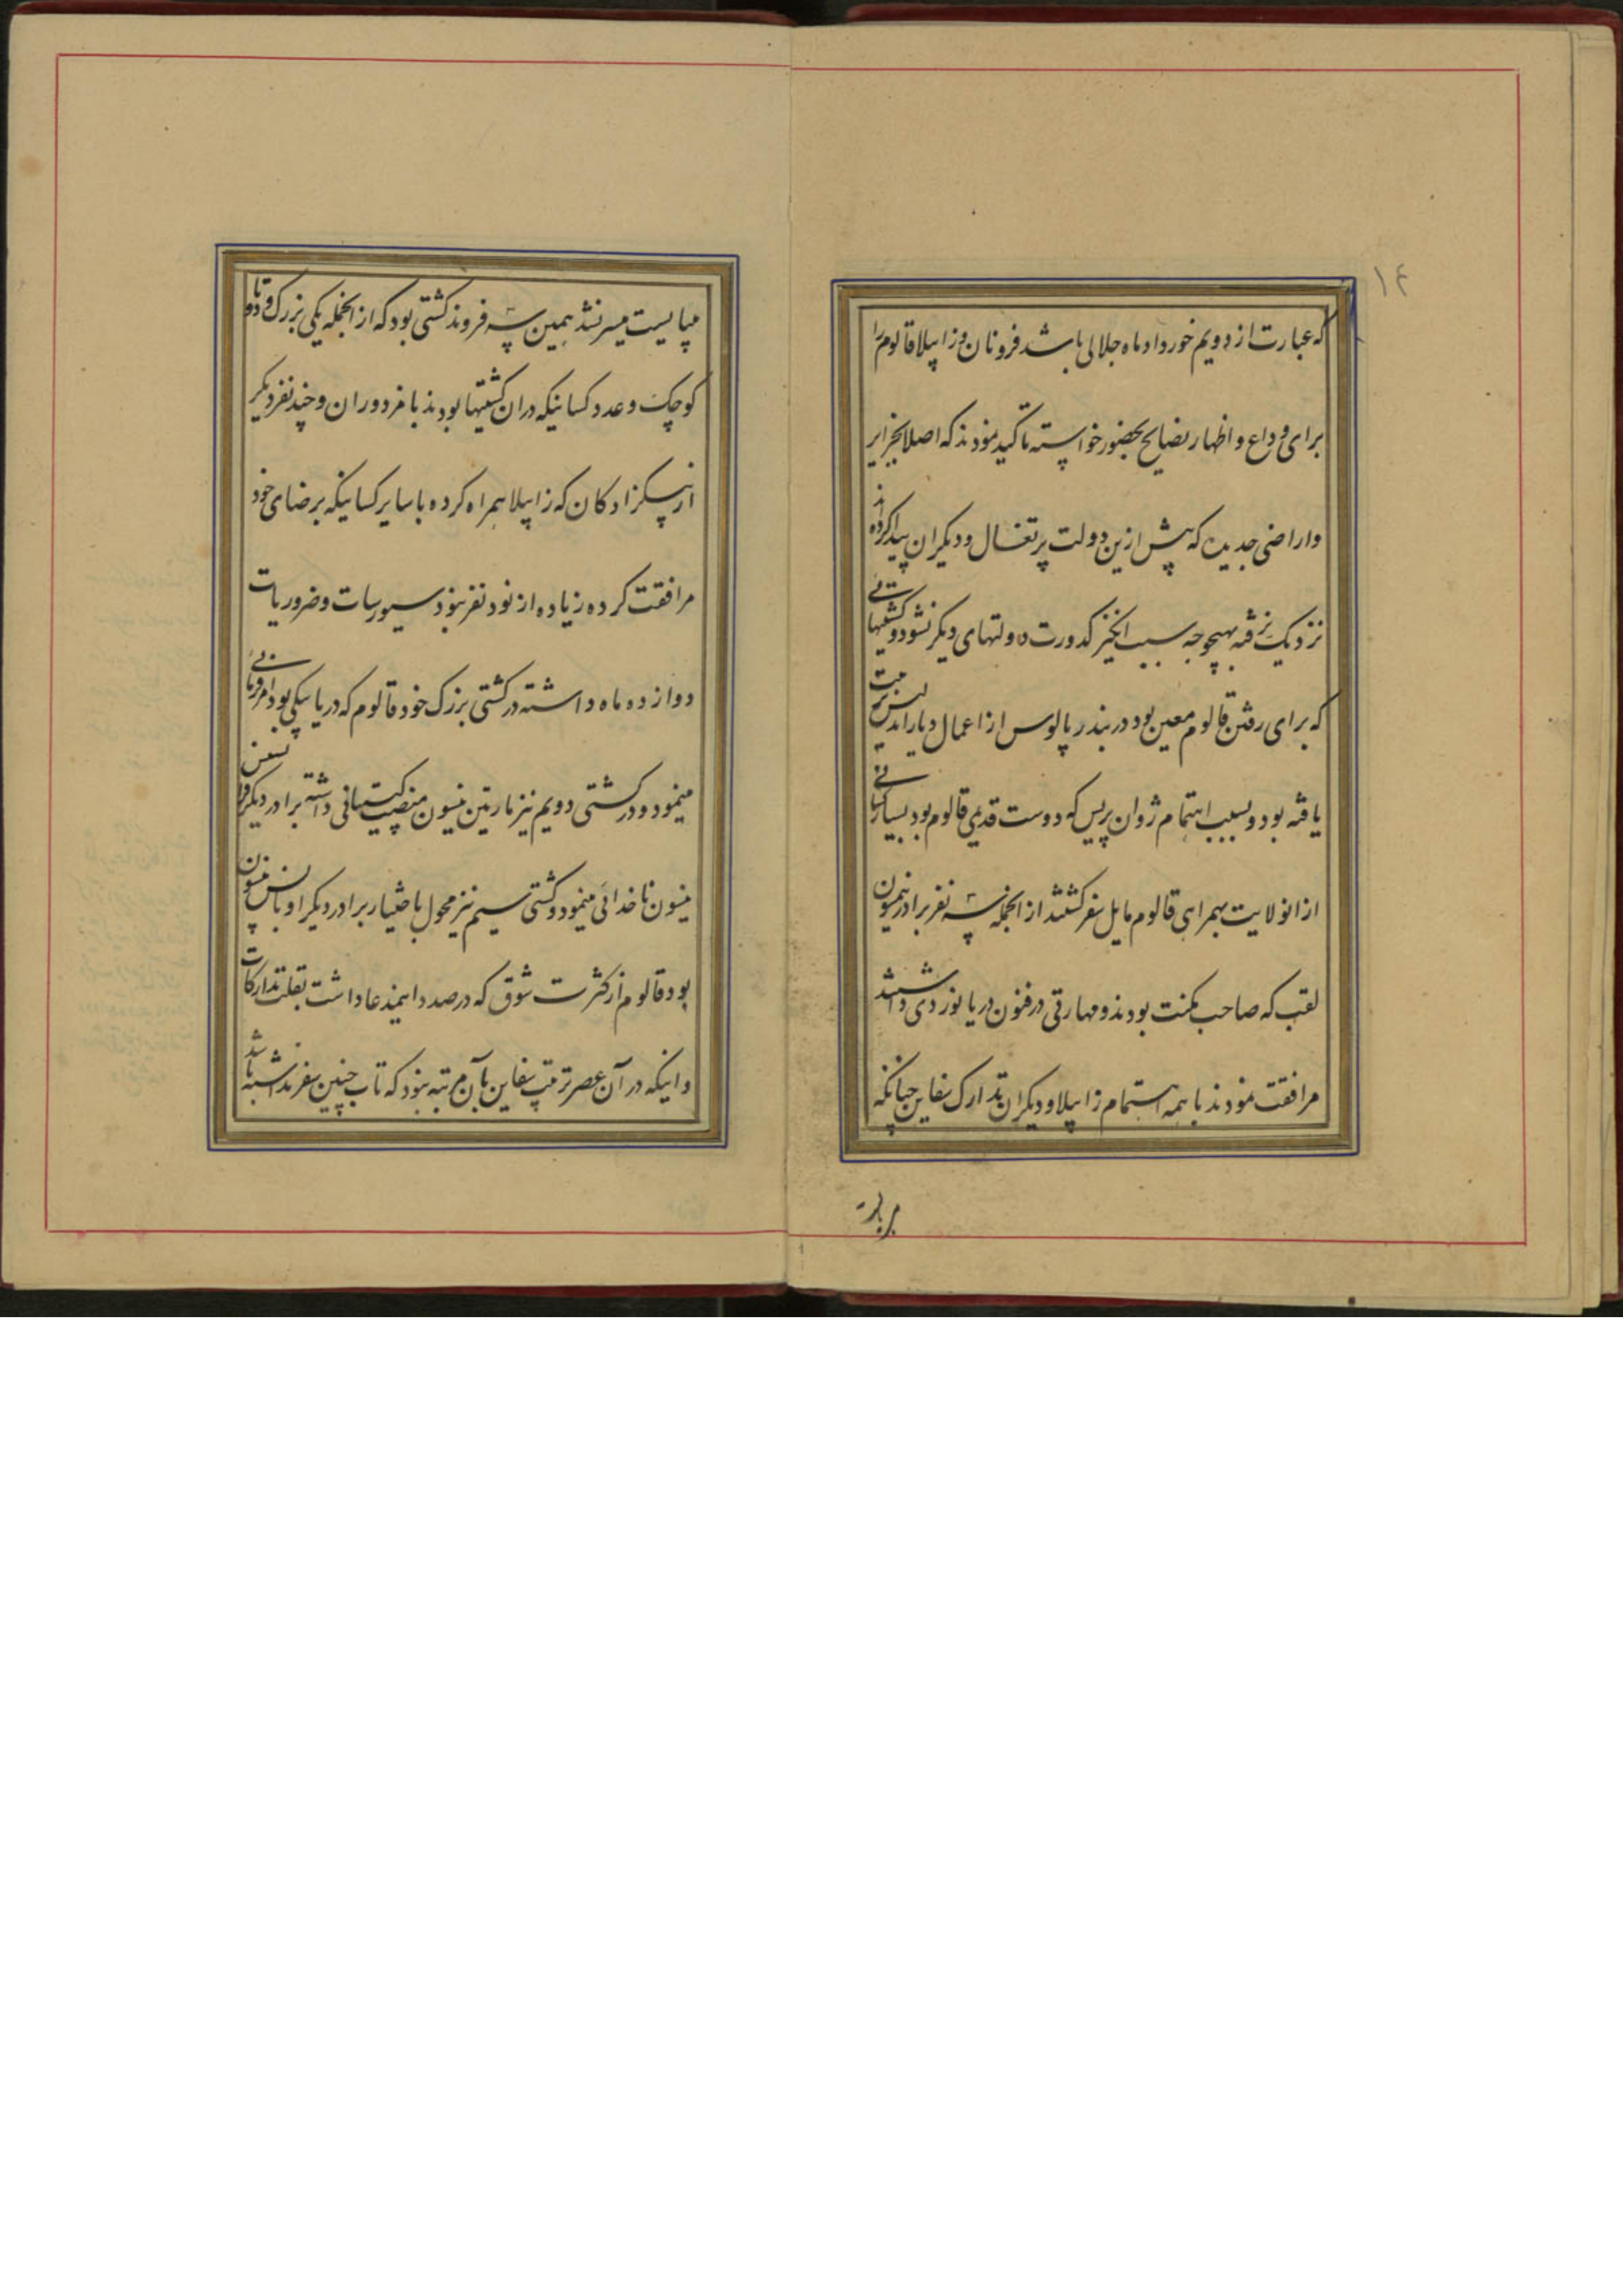 ۱۴
که عبارت از دویم خورداد ماه جلالی باشد فرونان و زابیلا قالوم را
برای وداع و اظهار نصایح بحضور خواسته تاکید نمودند که اصلا بجزایر
و اراضی جدید که پیش ازین دولت پرتغال و دیگران پیدا کرده اند
نزدیک نرفته بهیچوجه سبب انگیز کدورت دولتهای دیگر نشود و کشتیهائی
که برای رفتن قالوم معین بود در بندر پالوس از اعمال دیار اندلس تربیت
یافته بود و بسبب اهتمام ژوان پریس که دوست قدیمی قالوم بود بسیار کسانی
از انولایت بهمراهی قالوم مایل سفر گشتند از انجمله سه نفر برادر نیسون
لقب که صاحب مکنت بودند و مهارتی در فنون دریا نوردی داشتند
مرافقت نمودند با همه اهتمام زابیلا و دیگران تدارک سفاین چنانکه
میبایست
میبایست میسر نشد همین سه فروند کشتی بود که از انجمله یکی بزرک و دو تا
کوچک و عدد کسانیکه در ان کشتیها بودند با مزدوران و چند نفر دیگر
از پسکزادکان که زابیلا همراه کرده با سایر کسانیکه برضای خود
مرافقت کرده زیاده از نود نفر نبود سیورسات و ضروریات
دوازده ماه داشته در کشتی بزرک خود قالوم که دریا بیکی بود امر و نهی
مینمود و در کشتی دویم نیز مارتین نیسون منصب کپیتانی داشته برادر دیگر
نیسون ناخدائی مینمود و کشتی سیم نیز محول باختیار برادر دیگر او یانس نیسون
بود قالوم از کثرت شوق که در صدد این مدعا داشت بقلت تدارکات
و اینکه در آن عصر ترتیب سفاین بآن مرتبه نبود که تاب چنین سفر نداشته باشد